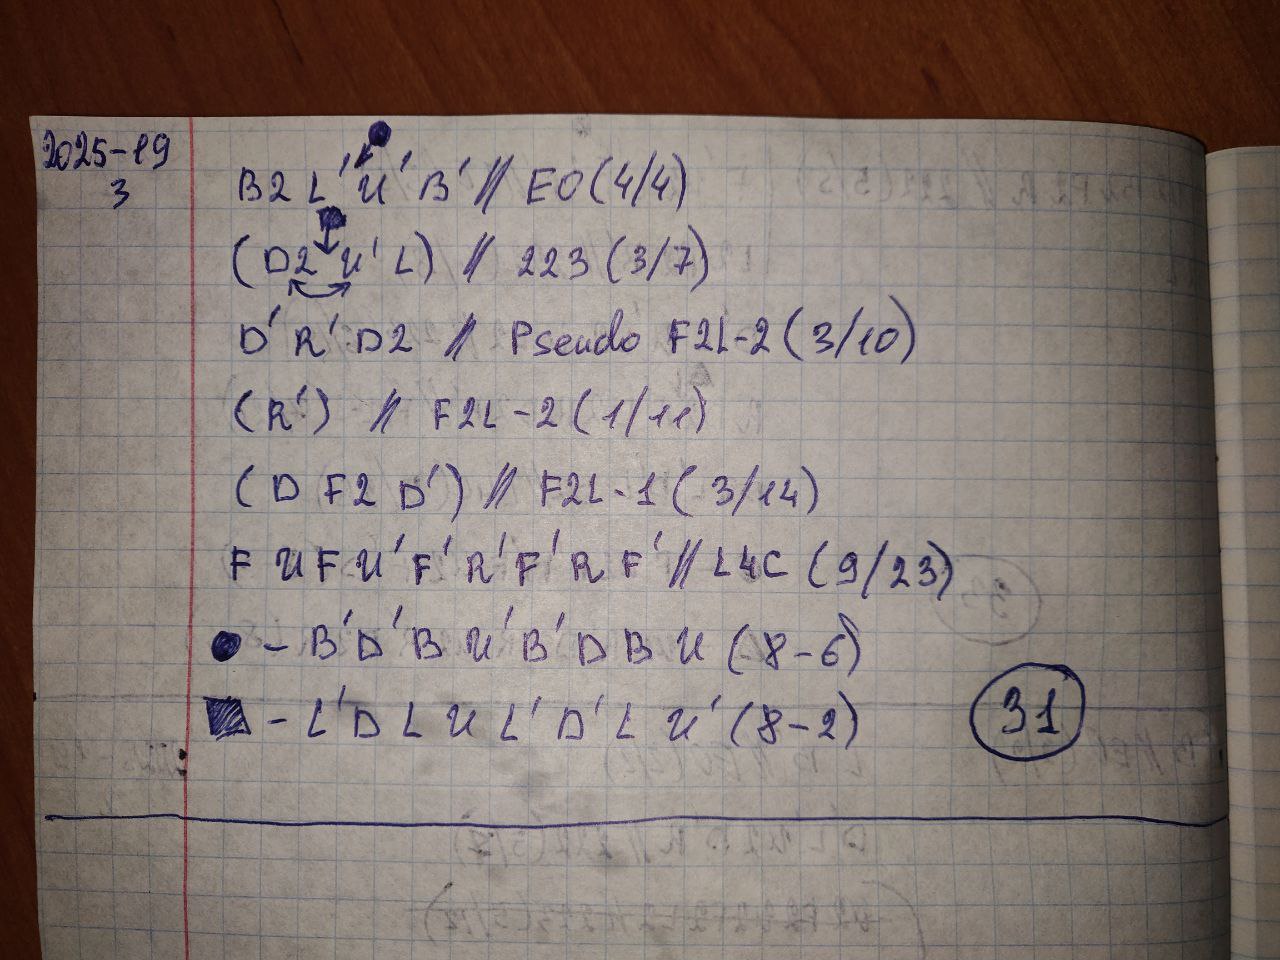 2025-19
3
B2 L' U' B' // EO (4/4)
(D2 U' L) // 223 (3/7)
D' R' D2 // Pseudo F2L-2 (3/10)
(R') // F2L-2 (1/11)
(D F2 D') // F2L-1 (3/14)
F U F U' F' R' F' R F' // L4C (9/23)
● - B' D' B U' B' D B U (8-6)
■ - L' D L U L' D' L U' (8-2)
31